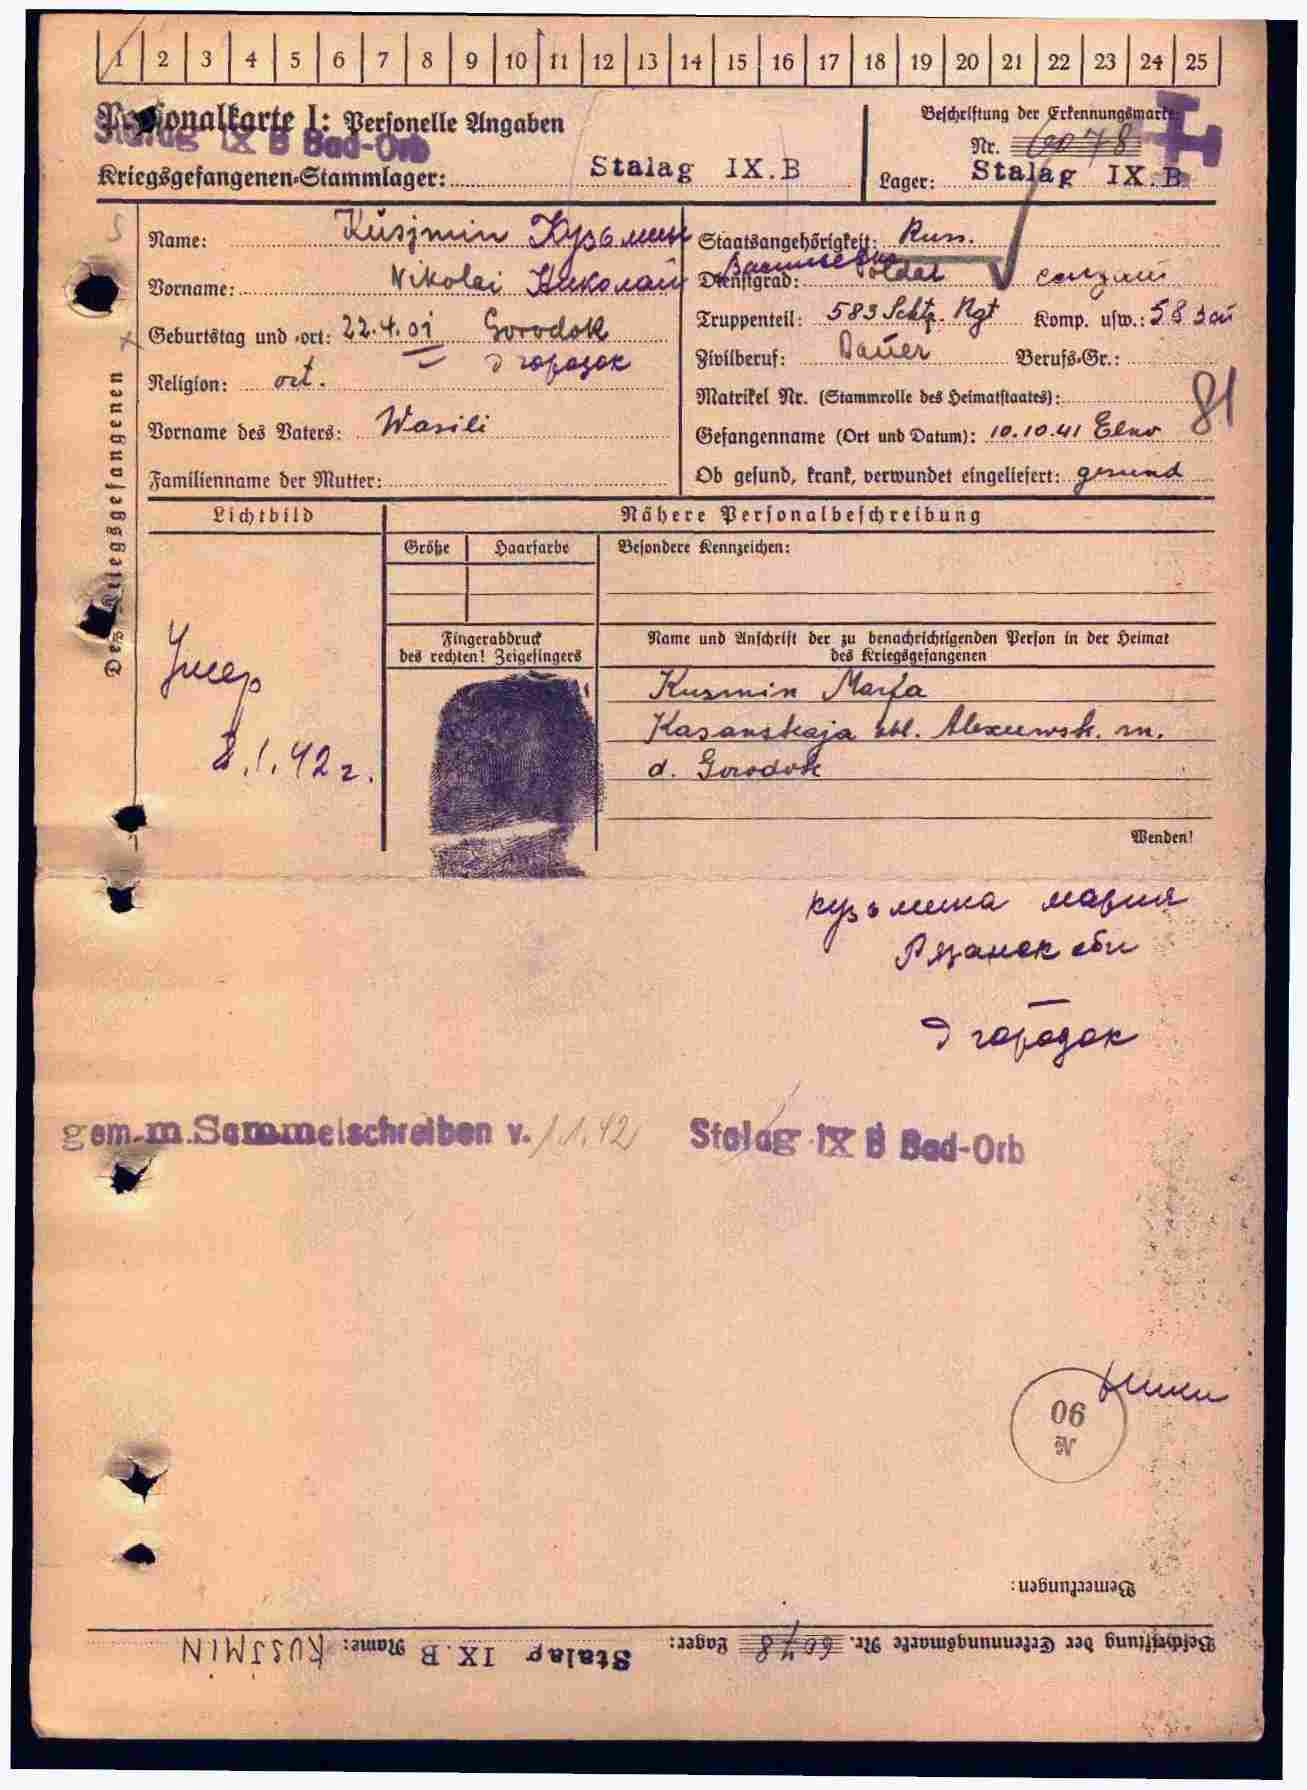 1 2 3 4 5 6 7 8 9 10 11 12 13 14 15 16 17 18 19 20 21 22 23 24 25
Personalkarte I: Personelle Angaben
Stalag IX B Bad-Orb
Kriegsgefangenen-Stammlager: Stalag IX.B
Beschriftung der Erkennungsmarke
Nr. 6078
Lager: Stalag IX.B
Des Kriegsgefangenen
Name: Kusjmin Кузьмин
Vorname: Nikolai Николай Васильевич
Geburtstag und -ort: 22.4.01 Gorodok
д городок
Religion: ort.
Vorname des Vaters: Wasili
Familienname der Mutter:
Staatsangehörigkeit: Russ.
Dienstgrad: Soldat солдат
Truppenteil: 583 Schtz. Rgt Komp. usw.: 583
Zivilberuf: Bauer Berufs-Gr.:
Matrikel Nr. (Stammrolle des Heimatstaates):
81
Gefangenname (Ort und Datum): 10.10.41 Elno
Ob gesund, krank, verwundet eingeliefert: gesund
Lichtbild
Nähere Personalbeschreibung
Größe Haarfarbe Besondere Kennzeichen:
Fingerabdruck
des rechten! Zeigefingers
Name und Anschrift der zu benachrichtigenden Person in der Heimat
des Kriegsgefangenen
Kusmin Marfa
Kasanskaja obl. Alexeewsk.
d. Gorodok
Умер
2.1.42 г.
Wenden!
кузьмина мария
Рязанск обл
д городок
gem. m. Sammelschreiben v. 1.42
Stalag IX B Bad-Orb
90
№
Bemerkungen:
Beschriftung der Erkennungsmarke Nr. 6078 Lager: Stalag IX.B Name: KUSJMIN